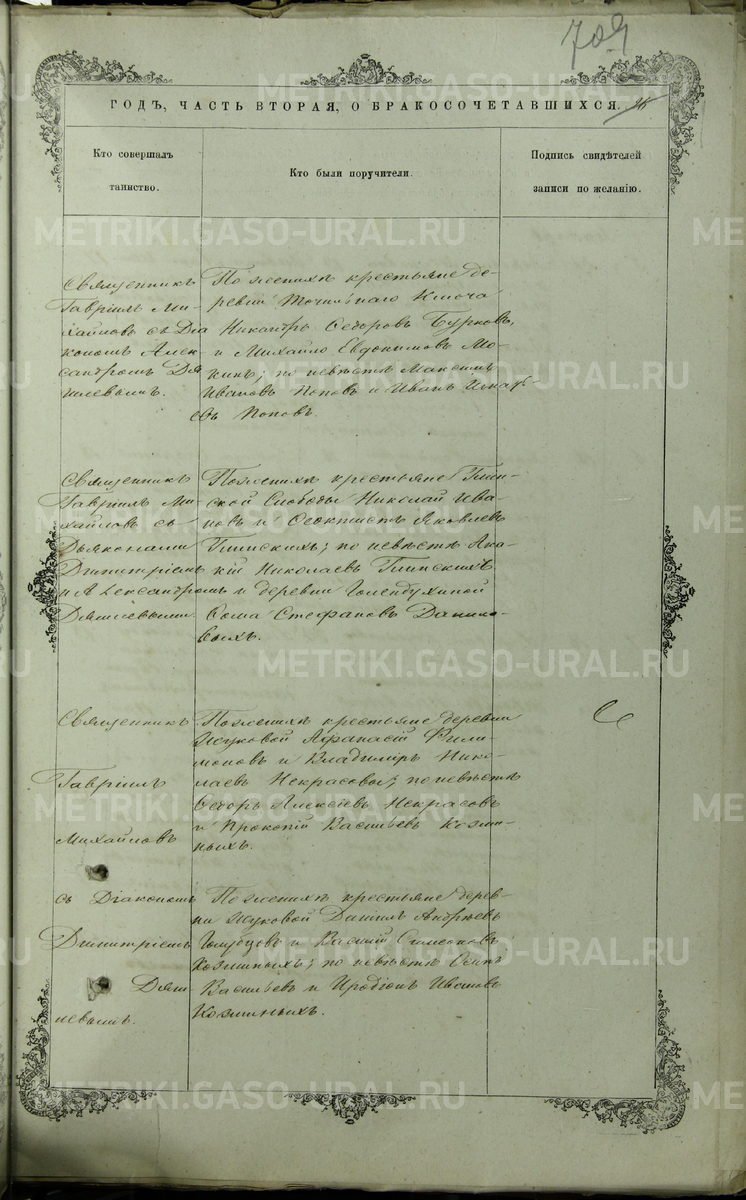 709
ГОДЪ, ЧАСТЬ ВТОРАЯ, О БРАКОСОЧЕТАВШИХСЯ.
Кто совершалъ
таинство.
Кто были поручители.
Подпись свидѣтелей
записи по желанію.
Священникъ
Гавріилъ Ми-
хайловъ съ Діа
кономъ Алек-
сандромъ
По женихѣ крестьяне де-
ревни Точильнаго Ключа
Никандръ Ѳедоровъ Бурковъ,
и Михайло Евдокимовъ Мо-
кинъ; по невѣстѣ Максимъ
Ивановъ Поповъ и Иванъ
Поповъ.
Священникъ
Гавріилъ Ми-
хайловъ съ
Дьяконами
Димитріемъ
и Александромъ
По женихѣ крестьяне Глин-
ской Слободы Николай Ива-
новъ и Ѳеоктистъ Яковлевъ
Глинскихъ; по невѣстѣ Ака-
кій Николаевъ Глинскихъ
и деревни Голендухиной
Ѳома Стефановъ Данило-
выхъ.
Священникъ
Гавріилъ
Михайловъ
съ Діакономъ
Димитріемъ
По женихѣ крестьяне деревни
Жуковой Афанасій Фили-
моновъ и Владиміръ Нико-
лаевъ Некрасовы; по невѣстѣ
Ѳедоръ Алексіевъ Некрасовъ
и Прокопій Васильевъ Козми-
ныхъ.
По женихѣ крестьяне дерев-
ни Жуковой Даніилъ Андреевъ
Голубцовъ и Василій Симеоновъ
Козминыхъ; по невѣстѣ Осипъ
Васильевъ и Иродіонъ Ивановъ
Козминыхъ.
METRIKI.GASO-URAL.RU